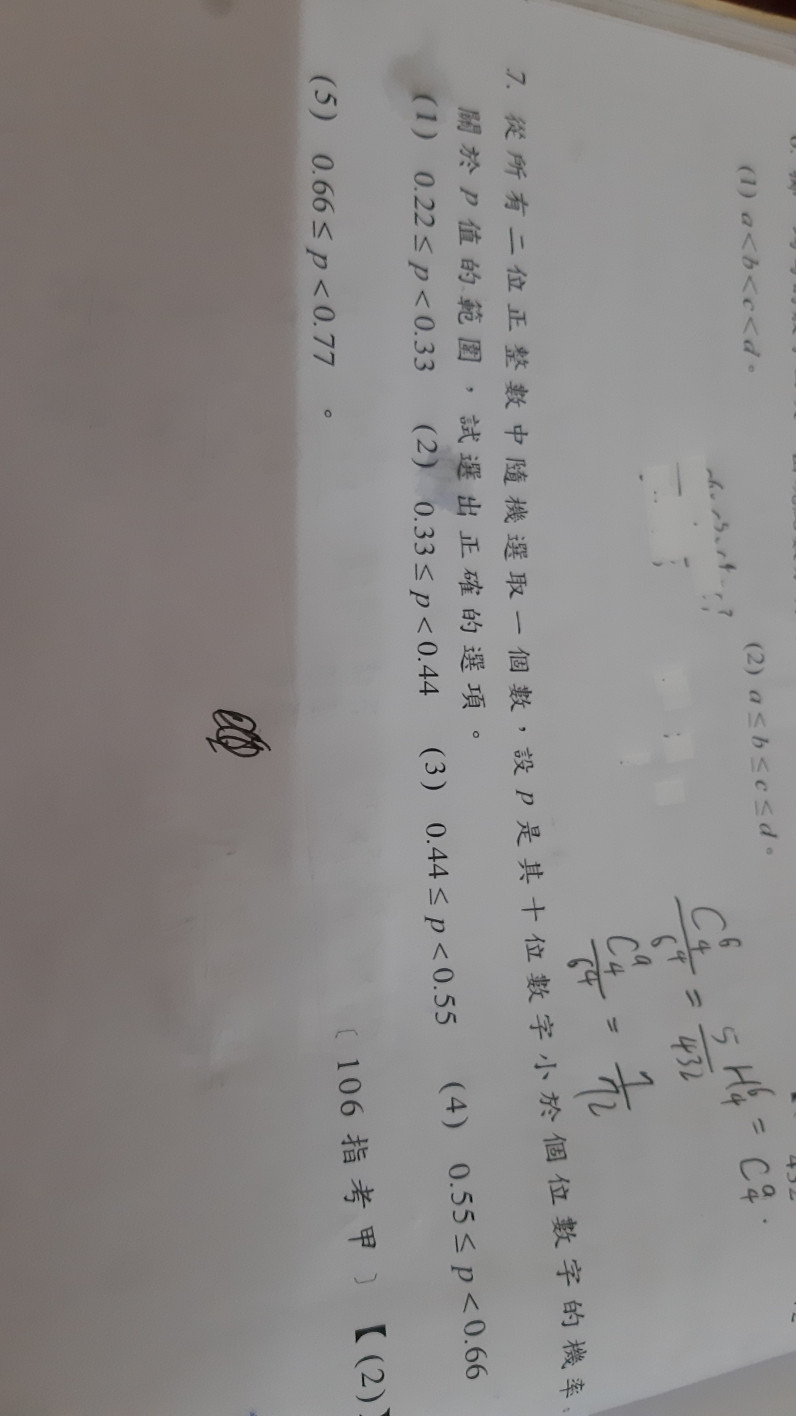 (1) a<b<c<d。 (2) a≤b≤c≤d。
H⁶₄ = C⁹₄.
C⁶₄/6⁴ = 5/432
C⁹₄/6⁴ = 7/72
7. 從所有二位正整數中隨機選取一個數，設 p 是其十位數字小於個位數字的機率。
關於 p 值的範圍，試選出正確的選項。
(1) 0.22≤p<0.33 (2) 0.33≤p<0.44 (3) 0.44≤p<0.55 (4) 0.55≤p<0.66
(5) 0.66≤p<0.77 。
〔106指考甲〕【(2)】